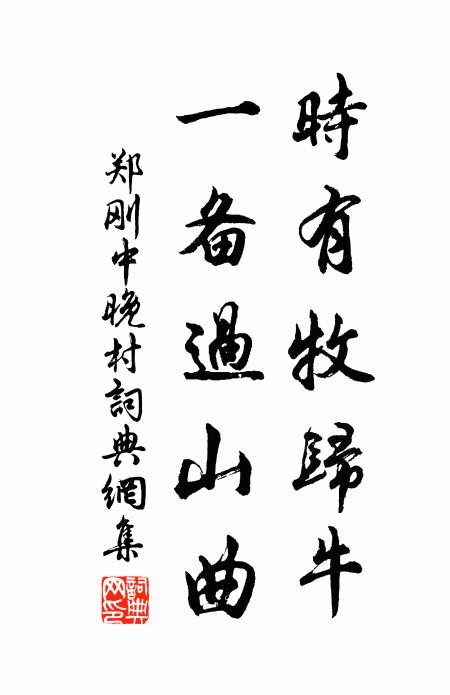 時有牧歸牛
一备過山曲
郑刚中晚村詞典網集
詞典网印